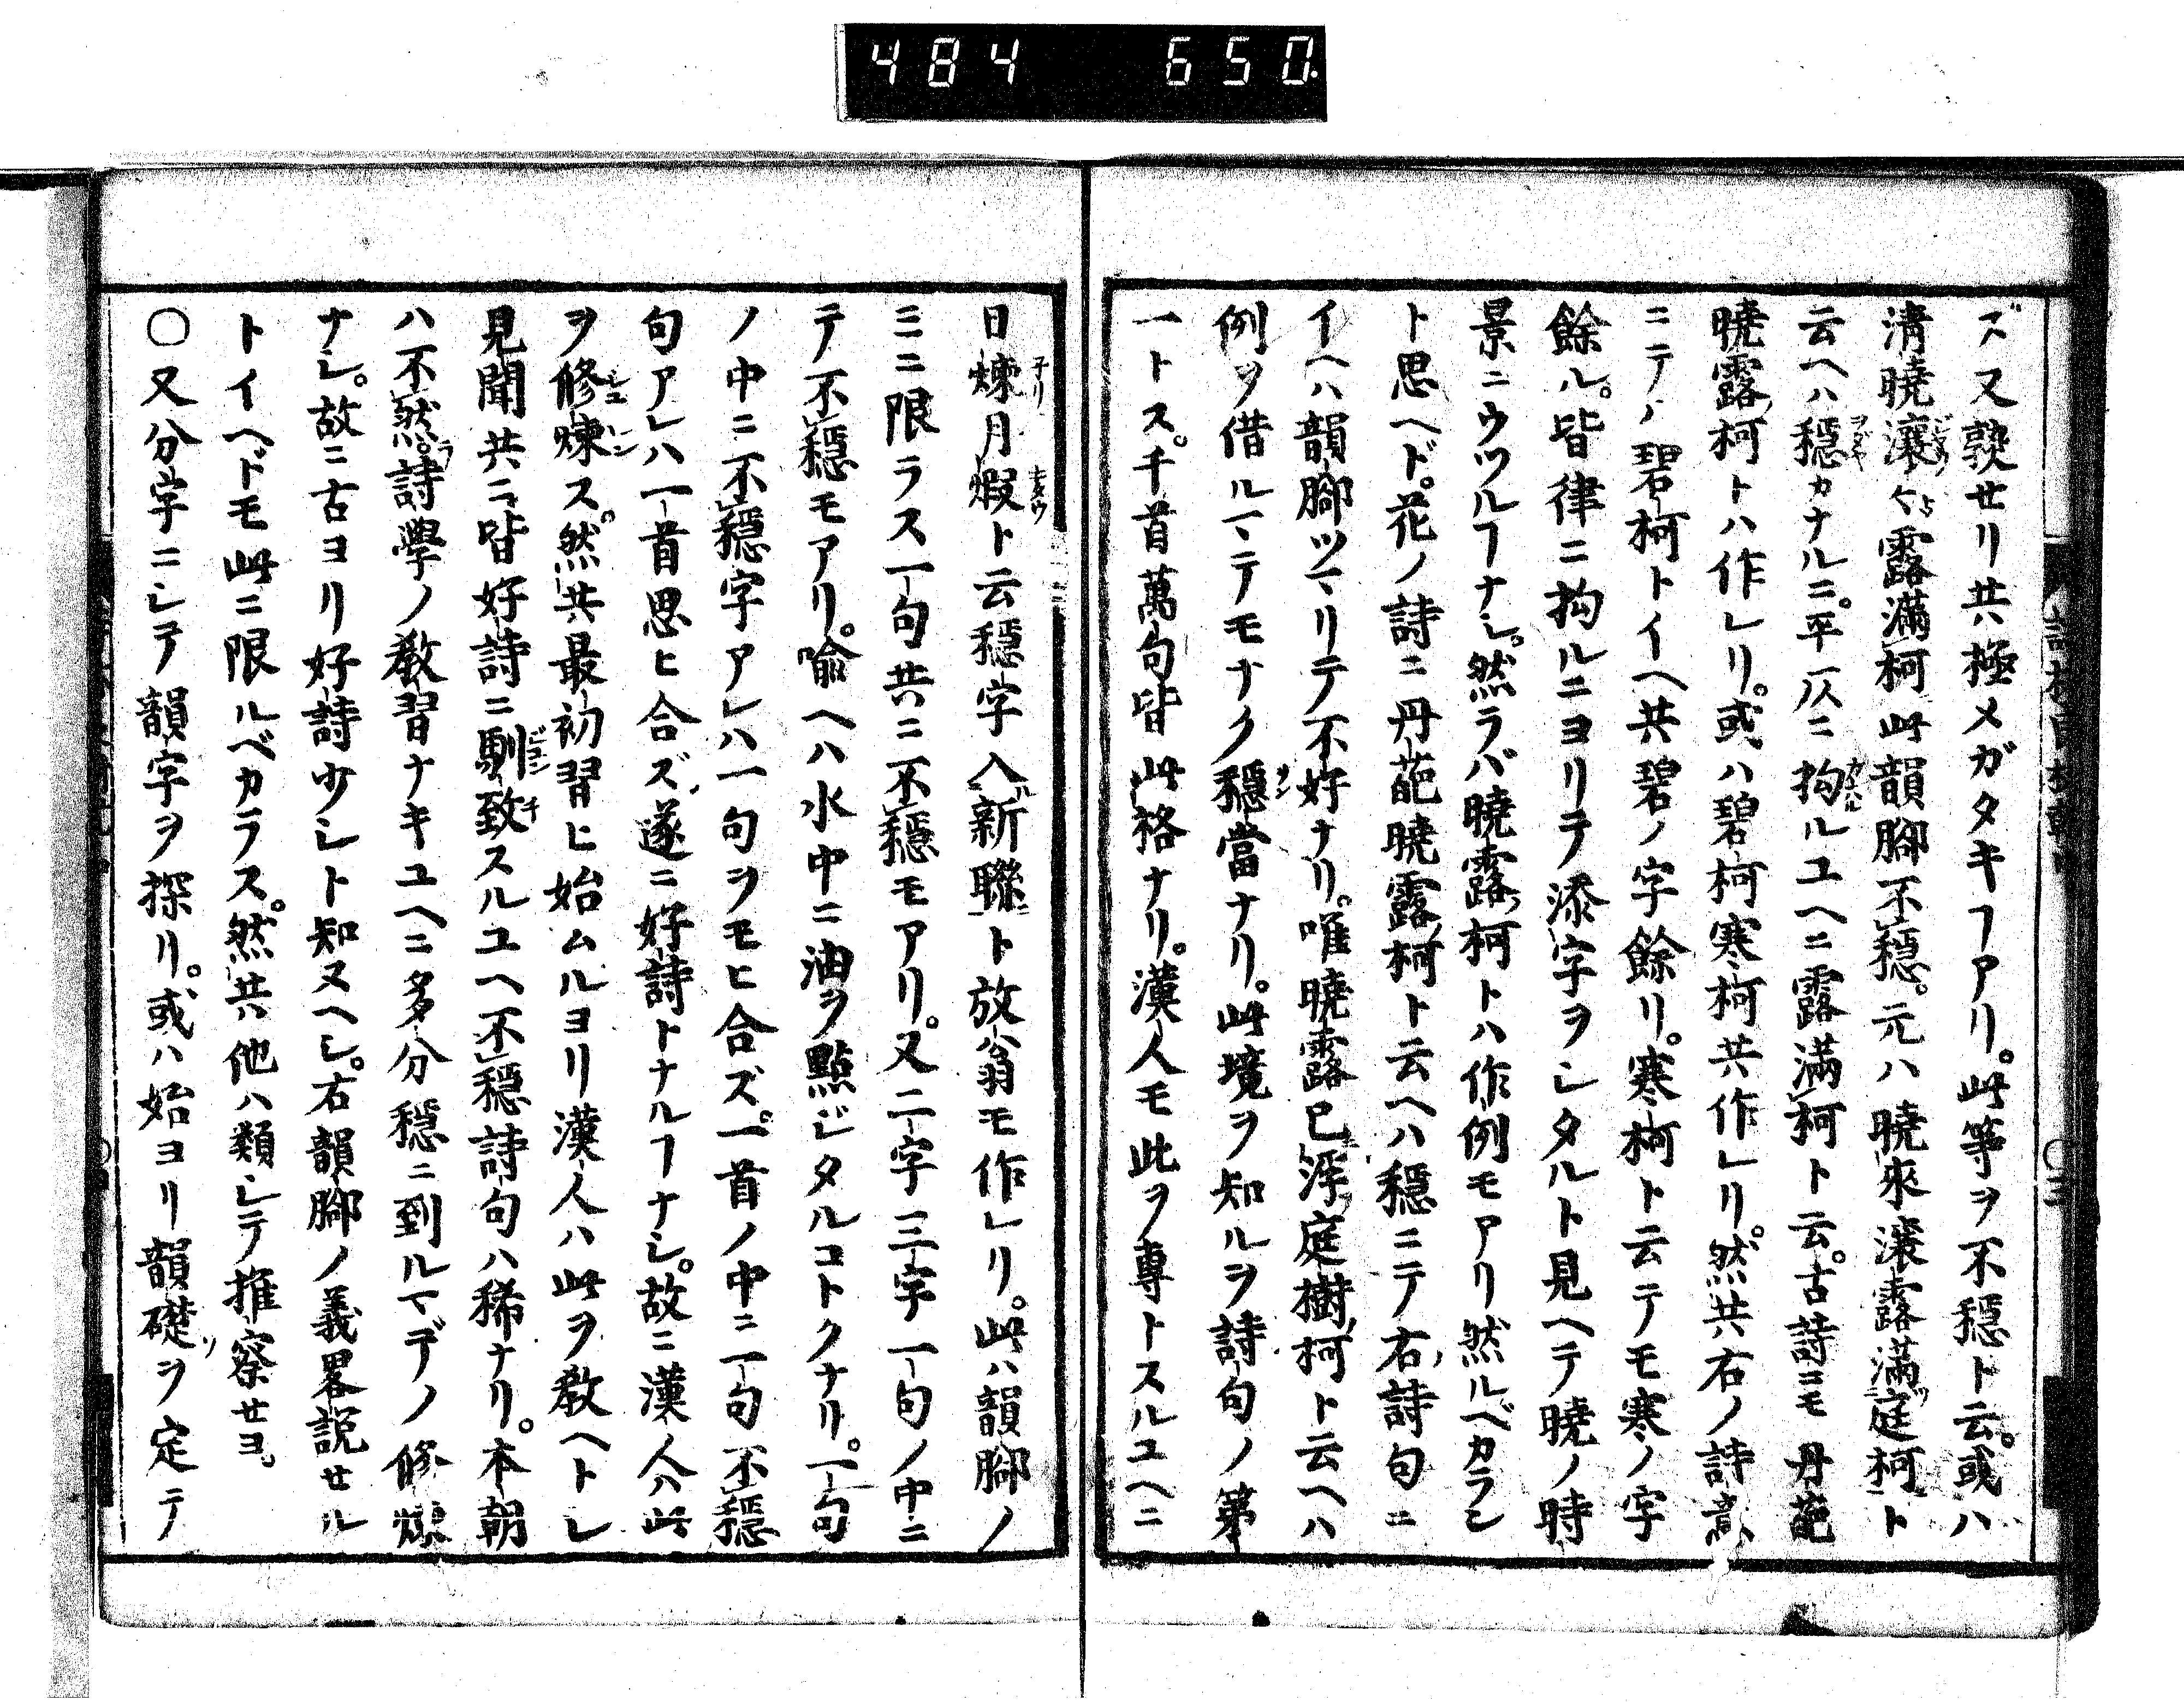 484 650
ズ又熟セリ共極メガタキヿアリ。此等ヲ不穩ト云。或ハ
淸曉瀼々露滿柯此韻腳不穩。元ハ曉來瀼露滿庭柯ト
云ヘハ穩カナルニ。平仄ニ拘ルユヘニ露滿柯ト云。古詩ニモ丹葩
曉露柯トハ作レリ。或ハ碧柯寒柯共作レリ。然共右ノ詩意
ニテノ碧柯トイヘ共碧ノ字餘リ。寒柯ト云テモ寒ノ字
餘ル。皆律ニ拘ルニヨリテ添字ヲシタルト見ヘテ曉ノ時
景ニウツルヿナシ。然ラバ曉露柯トハ作例モアリ然ルベカラン
ト思ヘド。花ノ詩ニ丹葩曉露柯ト云ヘハ穩ニテ右ノ詩句ニ
イヘハ韻腳ツマリテ不好ナリ。唯曉露已浮庭樹柯ト云ヘハ
例ヲ借ルマテモナク穩當ナリ。此境ヲ知ルヲ詩句ノ第
一トス。千首萬句皆此格ナリ。漢人モ此ヲ專トスルユヘニ
日煉月煆ト云穩字入新聯ト放翁モ作レリ。此ハ韻腳ノ
ミニ限ラス一句共ニ不穩モアリ。又二字三字一句ノ中ニ
テ不穩モアリ。喩ヘハ水中ニ油ヲ點ジタルコトクナリ。一句
ノ中ニ不穩字アレハ一句ヲモヒ合ズ。一首ノ中ニ一句不穩
句アレハ一首思ヒ合ズ遂ニ好詩トナルヿナシ。故ニ漢ノ人ハ此
ヲ修煉ス。然共最初習ヒ始ムルヨリ漢人ハ此ヲ敎ヘトシ
見聞共ニ皆好詩ニ馴致スルユヘ不穩詩句ハ稀ナリ。本朝
ハ不然。詩學ノ敎習ナキユヘニ多分穩ニ到ルマデノ修煉
ナシ。故ニ古ヨリ好詩少シト知ヌヘシ。右韻腳ノ義畧說セル
トイヘドモ此ニ限ルベカラス。然共他ハ類シテ推察セヨ。
〇又分字ニシテ韻字ヲ探リ。或ハ始ヨリ韻礎ヲ定テ